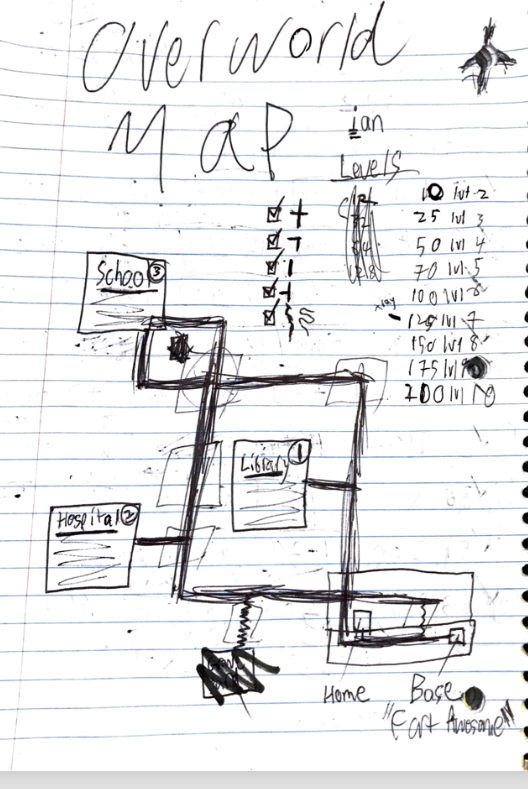 Overworld
Map
ian
Levels
10 lvl 2
25 lvl 3
50 lvl 4
70 lvl 5
100 lvl 6
xray
125 lvl 7
150 lvl 8
175 lvl 9
200 lvl 10
School 3
Library 1
Hospital 2
Home
Base
"Fort Awesome"